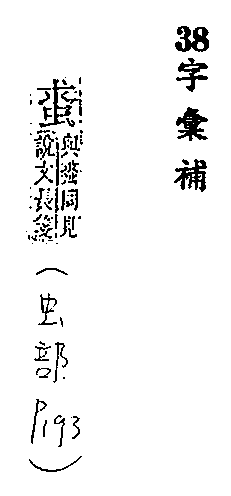 38字彙補
與同見
說文長箋
(虫部 P193)